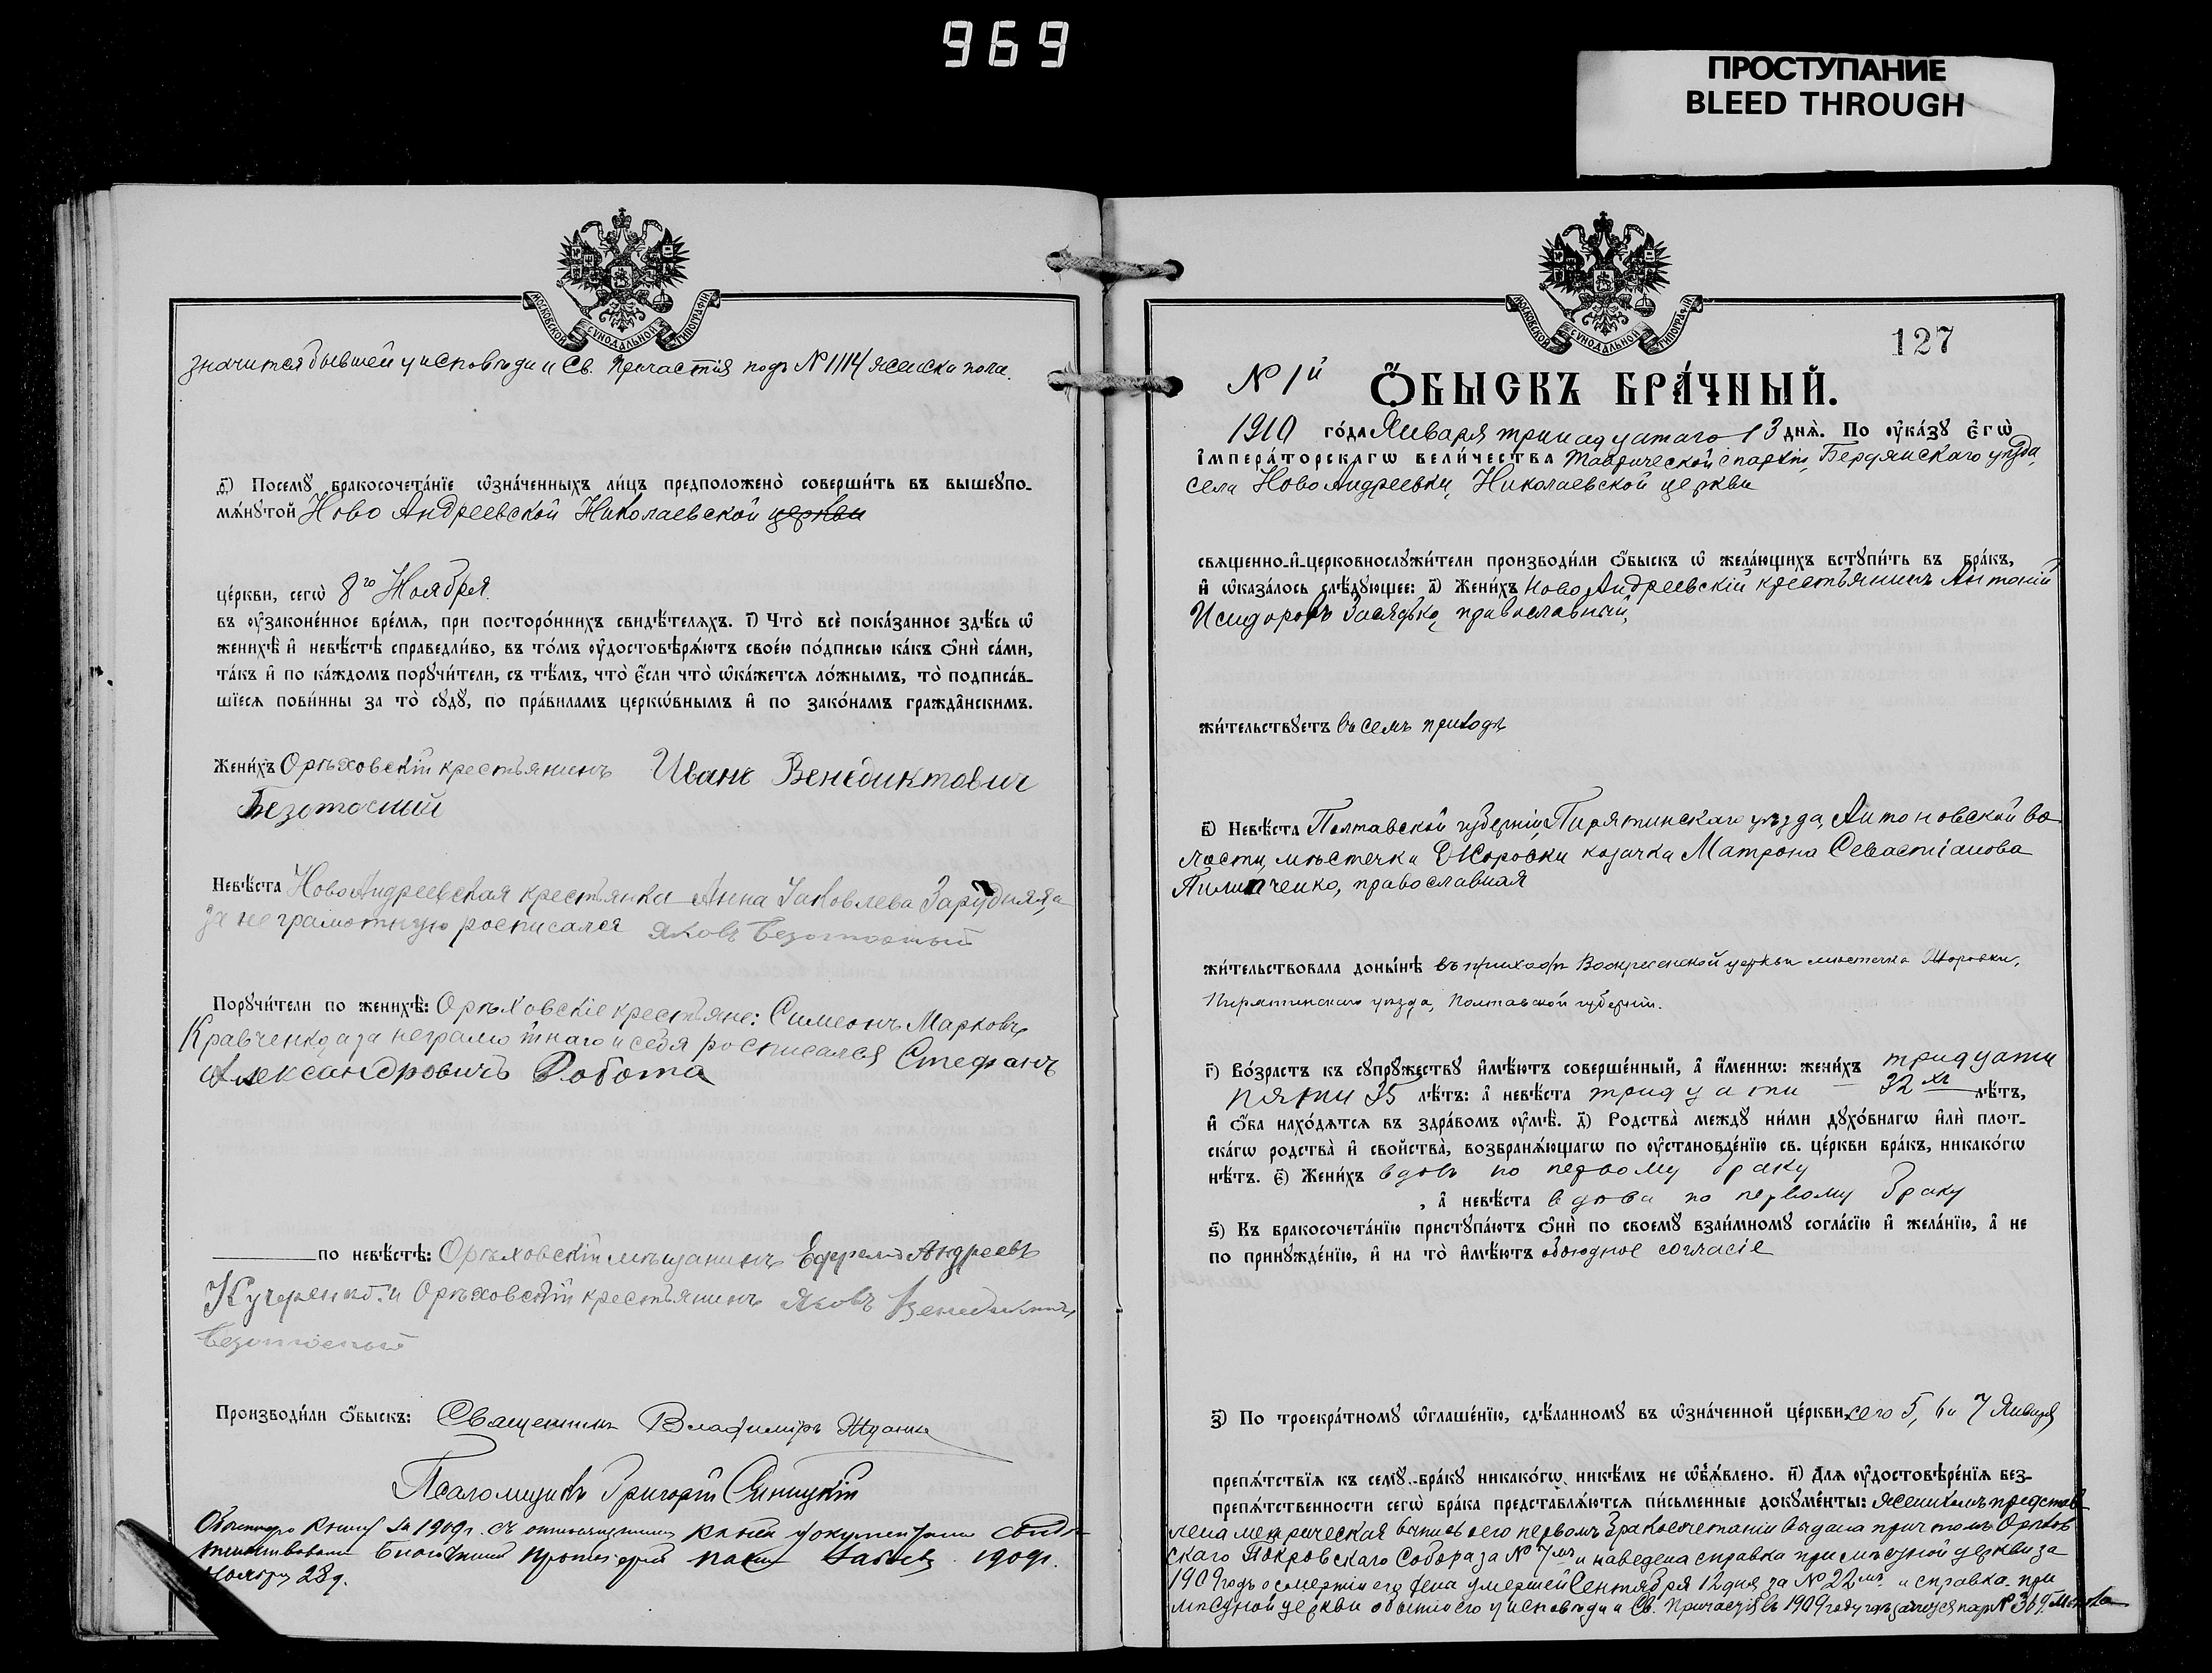 969
ПРОСТУПАНИЕ
BLEED THROUGH
МОСКОВСКОЙ СѴНОДАЛЬНОЙ ТИПОГРАФІИ
значится бывшей у исповѣди и Св. Причастія подъ № 1114 женска пола.
ѳ҃) Посемꙋ бракосочета́нїе ѡзна́ченныхъ ли́цъ предположено̀ соверши́ть въ вышеꙋпо-
мѧ́нꙋтой Ново Андреевской Николаевской церкви
це́ркви, сегѡ̀ 8го Ноября
въ ᲂузаконе́нное вре́мѧ, при посторо́ннихъ свидѣ́телѧхъ. і҃) Что̀ всѐ пока́занное здѣ́сь ѡ
женихѣ̀ и҆ невѣ́стѣ справедли́во, въ то́мъ ᲂудостовѣрѧ́ютъ свое́ю по́дписью ка́къ ѻ҆нѝ са́ми,
та́къ и҆ по ка́ждомъ порꙋчи́тели, съ тѣ́мъ, что̀ є҆́сли что̀ ѡка́жется ло́жнымъ, то̀ подписа́в-
шїесѧ пови́нны за то̀ сꙋдꙋ̀, по пра́виламъ церко́внымъ и҆ по зако́намъ гражда̂нскимъ.
Жени́хъ Орѣховскій крестьянинъ Иванъ Венедиктович
Безоточный
Невѣ́ста Ново Андреевская крестьянка Анна Іаковлева Зарудняя, а
за неграмотную росписался Яковъ Безоточный
Порꙋчи́тели по женихѣ̀: Орѣховскіе крестьяне: Симеонъ Марковъ
Кравченко, а за неграмотнаго и себя росписался Стефанъ
Александровичъ Робота
по невѣ́стѣ: Орѣховскій мѣщанинъ Ефремъ Андреевъ
Кучеренко и Орѣховскій крестьянинъ Яковъ Венедиктъ
Безоточный
Производи́ли ѻ҆́быскъ: Священникъ Владиміръ
Псаломщикъ Григорій Синицкій
1909г. съ
Благочинный Протоіерей 1909г.
Ноября 28 д.
127
№ 1й Ѻ҆́БЫСКЪ БРА́ЧНЫЙ.
1910 го́да Января тринадцатаго 13 днѧ̀. По ᲂука́зꙋ є҆гѡ̀
і҆мпера́торскагѡ вели́чества Таврической епархіи, Бердянскаго уѣзда,
села Ново Андреевки, Николаевской церкви
свѧщенно-и҆-церковнослꙋжи́тели производи́ли ѻ҆́быскъ ѡ жела́ющихъ встꙋпи́ть въ бра́къ,
и҆ ѡказа́лось слѣ́дꙋющее: а҃) Жени́хъ Ново Андреевскій крестьянинъ Антоній
Исидоровъ Засядько, православный,
жи́тельствꙋетъ въ семъ приходѣ
в҃) Невѣ́ста Полтавской губерніи, Пирятинскаго уѣзда, Антоновской во-
лости, мѣстечка Жоровки козачка Матрона Севастіанова
Пилипченко, православная
жи́тельствовала доны́нѣ въ приходѣ Воскресенской церкви мѣстечка Жоровки,
Пирятинскаго уѣзда, Полтавской губерніи.
г҃) Во́зрастъ къ сꙋпрꙋ́жествꙋ и҆мѣ́ютъ соверше́нный, а҆ и҆́меннѡ: жени́хъ тридцати
пяти 35 лѣ́тъ: а҆ невѣ́ста тридцати 32хъ лѣ́тъ,
и҆ ѻ҆́ба нахо́дѧтсѧ въ здра́вомъ ᲂумѣ̀. д҃) Родства̀ междꙋ ни́ми дꙋхо́внагѡ и҆лѝ плот-
ска́гѡ родства̀ и҆ свойства̀, возбранѧ́ющагѡ по ᲂустановле́нїю св. це́ркви бра́къ, никако́гѡ
нѣ́тъ. є҃) Жени́хъ вдовъ по первому браку
, а҆ невѣ́ста вдова по первому браку
ѕ҃) Къ бракосочета́нїю пристꙋпа́ютъ ѻ҆нѝ по своемꙋ̀ взаи́мномꙋ согла́сїю и҆ жела́нїю, а҆ не
по принꙋжде́нїю, и҆ на то̀ и҆мѣ́ютъ обоюдное согласіе
з҃) По троекра́тномꙋ ѡглаше́нїю, сдѣ́ланномꙋ въ ѡзна́ченной це́ркви сего 5, 6 и 7 Января
препѧ́тствїѧ къ семꙋ̀ бра́кꙋ никако́гѡ никѣ́мъ не ѡб̾ѧ́влено. и҃) Длѧ ᲂудостовѣре́нїѧ без-
препѧ́тственности сегѡ̀ бра́ка представлѧ́ютсѧ пи́сьменные докꙋме́нты: женихомъ представ-
лена метрическая выпись о его первомъ бракосочетаніи выдана причтомъ Орѣхов-
скаго Покровскаго Собора за № 7мъ и наведена справка при мѣстной церкви за
1909 годъ о смерти его жена умершей Сентября 12 дня за № 22мъ и справка при
мѣстной церкви о бытіи его у исповѣди и Св. Причастія въ 1909 году гдѣ значится под № 369